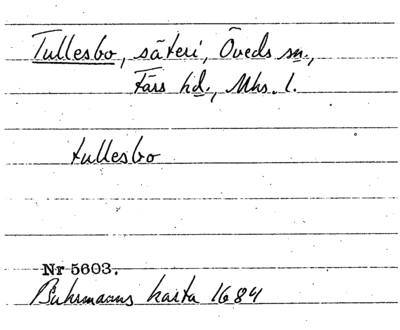 Tullesbo, säteri, Öveds sn.,
Färs hd., Mhs. l.
tullesbo
Nr 5603.
Buhrmanns karta 1684